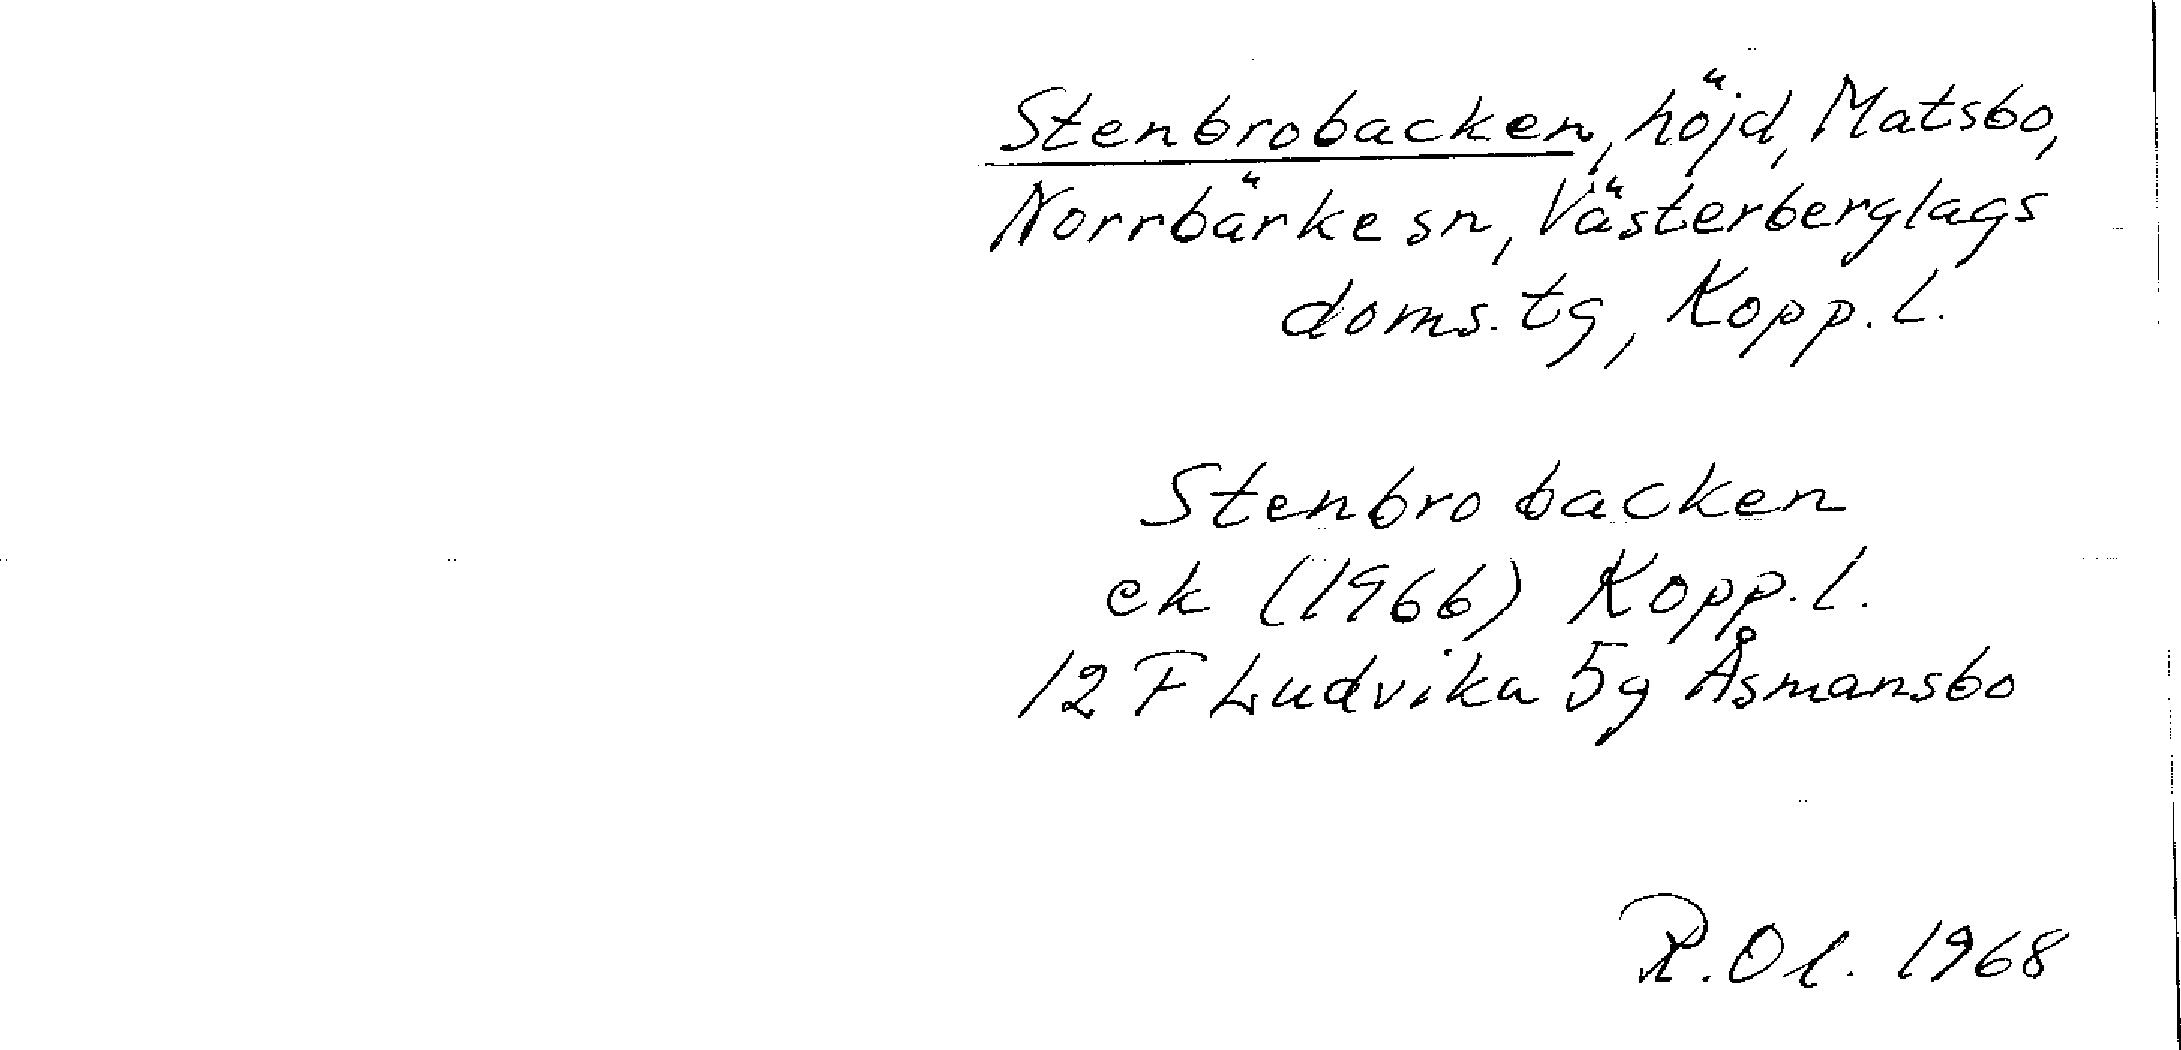 Stenbrobacken, höjd, Matsbo,
Norrbärke sn, Västerberglags
doms. tg, Kopp. l.
Stenbrobacken
ek (1966) Kopp. l.
12 F Ludvika 5g Åsmansbo
R. Ol. 1968